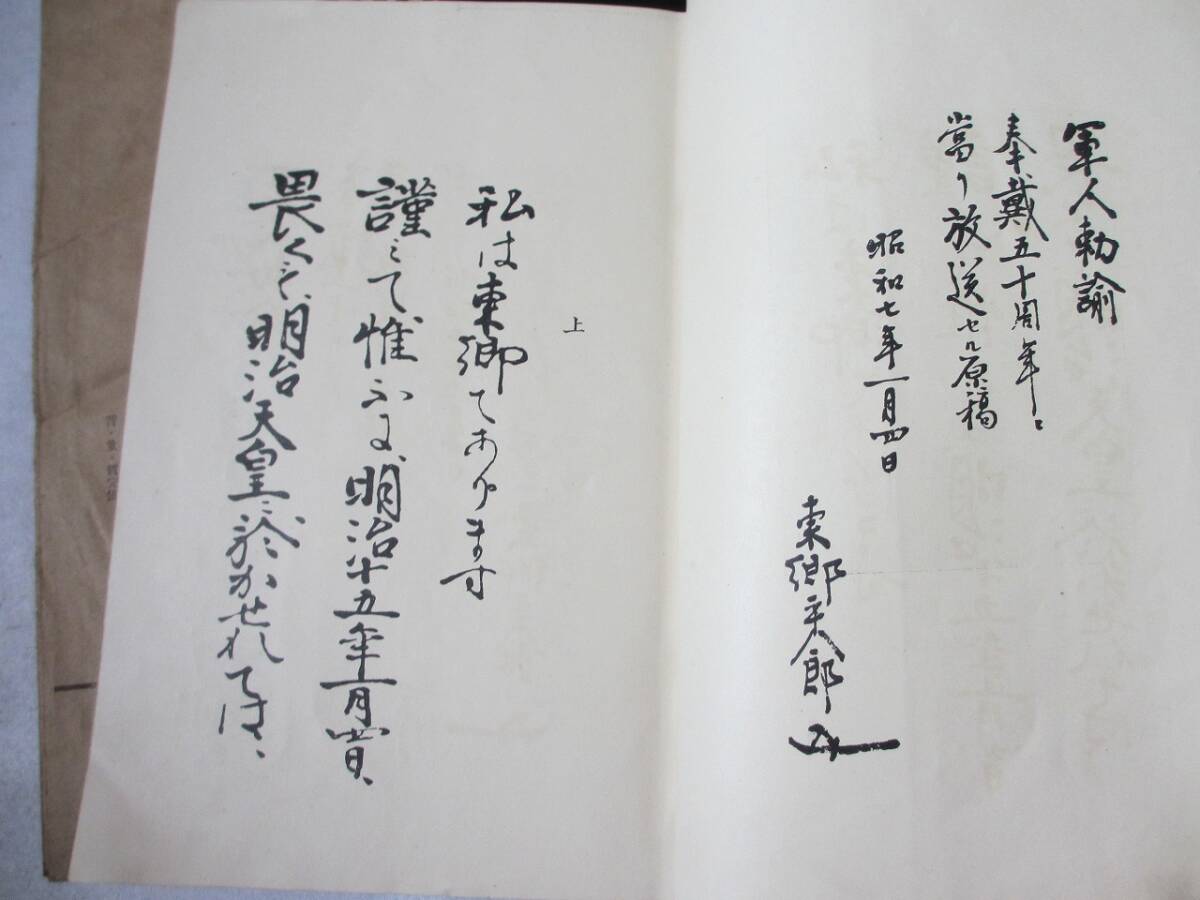 軍人勅諭
奉戴五十周年ニ
當リ放送セル原稿
昭和七年一月四日
東郷平八郎
上
私は東郷てあります
謹みて惟ふに、明治十五年一月四日、
畏くも、明治天皇に於かせれては、